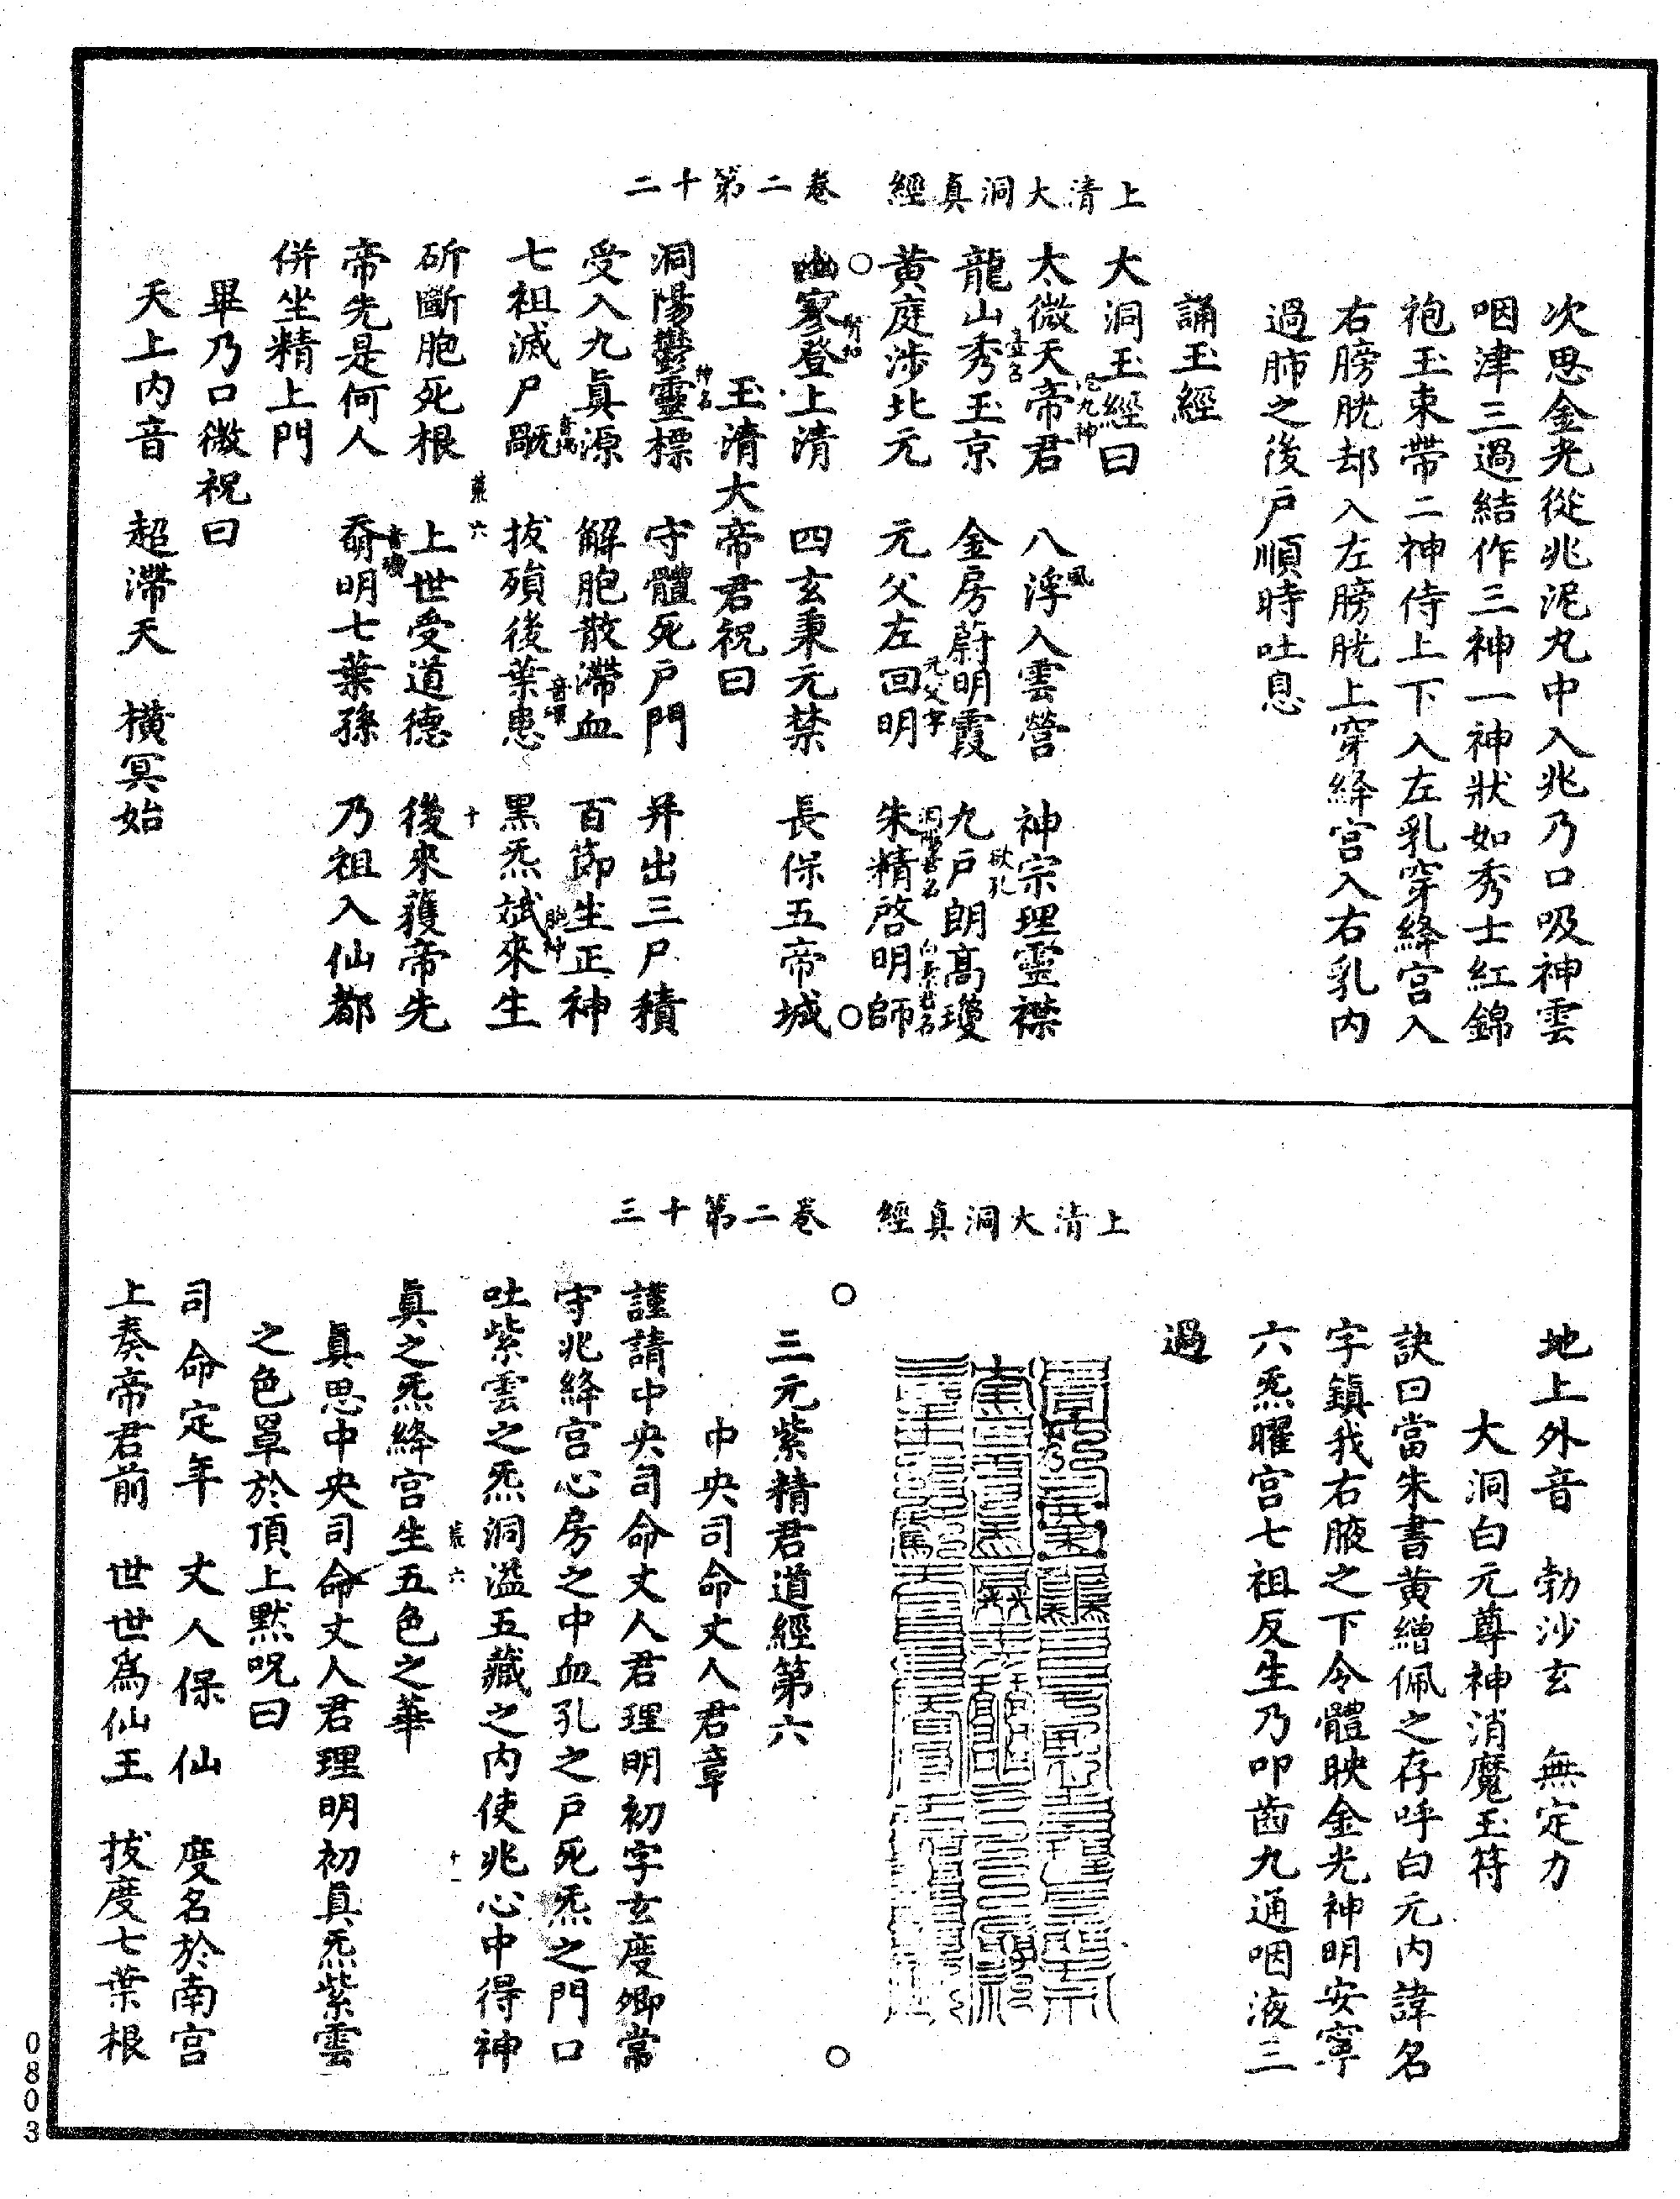 上清大洞真經　卷二第十二
次思金光從兆泥丸中入兆乃口吸神雲
咽津三過結作三神一神狀如秀士紅錦
袍玉束帶二神侍上下入左乳穿絳宮入
右膀胱却入左膀胱上穿絳宮入右乳內
過肺之後戶順時吐息
誦玉經
大洞玉經曰
太微天帝君泥九神　八風浮入雲營　神宗理靈襟
龍山秀臺名玉京　金房蔚明霞　九戶朗高瓊
黃庭涉北元　元父左回明元父字　朱精啓明師
幽寥登上清　四玄秉元禁　長保五帝城
玉清大帝君祝曰
洞陽鬱靈標神名　守體死戶門　并出三尸積
受入九真源　解胞散滯血　百節生正神
七祖滅尸　拔殞後葉患　黑炁斌來生
斫斷胞死根　上世受道德　後來蒦帝先
帝先是何人　明七葉孫　乃祖入仙都
併坐精上門
畢乃口微祝曰
天上內音　超滯天　橫冥始
上清大洞真經　卷二第十三
地上外音　勃沙玄　無定力
大洞白元尊神消魔玉符
訣曰當朱書黃繒佩之存呼白元內諱名
字鎮我右腋之下令體映金光神明安寧
六炁曜宮七祖反生乃叩齒九通咽液三
過
三元紫精君道經第六
中央司命丈人君章
謹請中央司命丈人君理明初字玄度卿常
守兆絳宮心房之中血孔之戶死炁之門口
吐紫雲之炁洞溢五藏之內使兆心中得神
真之炁絳宮生五色之華
真思中央司命丈人君理明初真炁紫雲
之色罩於頂上默呪曰
司命定年　丈人保仙　度名於南宮
上奏帝君前　世世為仙王　拔度七葉根
0803